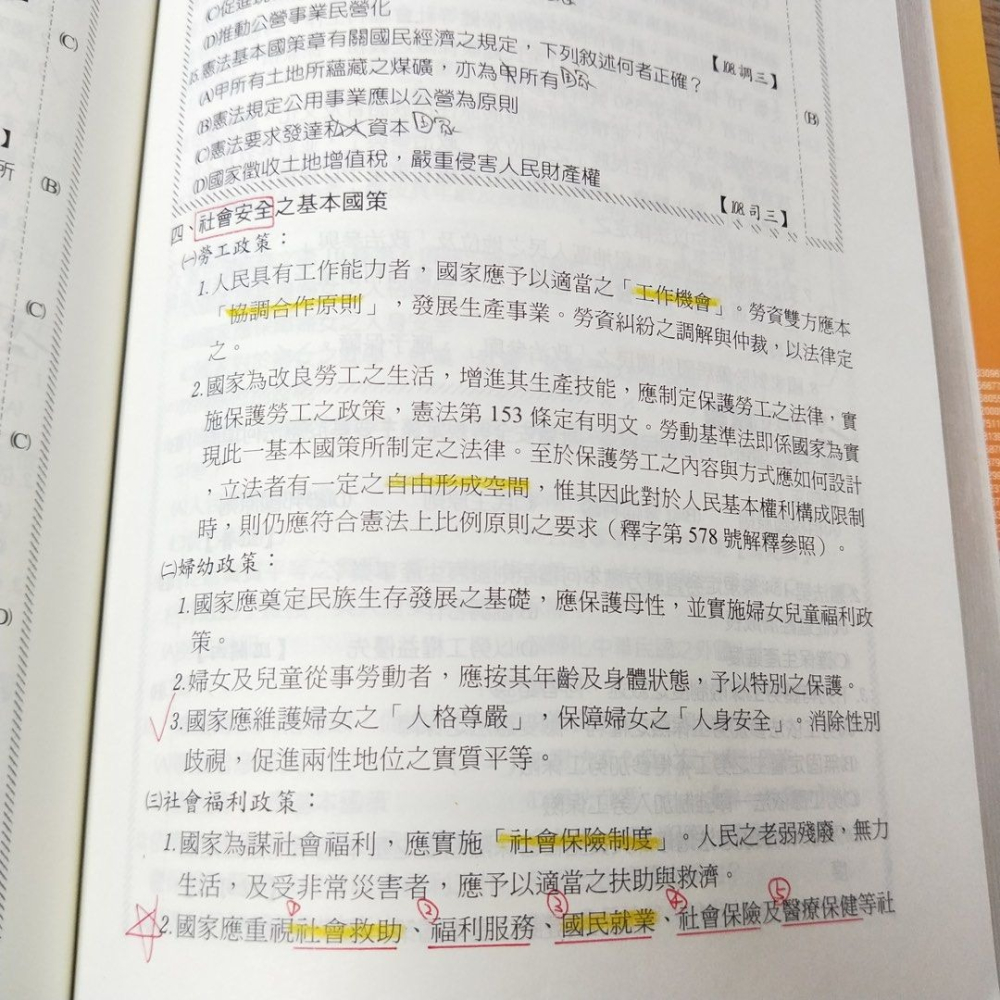 (D)推動公營事業民營化
【108調三】
憲法基本國策章有關國民經濟之規定,下列敘述何者正確?
(B)
(A)甲所有土地所蘊藏之煤礦,亦為甲所有 國家
(B)憲法規定公用事業應以公營為原則
(C)憲法要求發達私人資本 國家
(D)國家徵收土地增值稅,嚴重侵害人民財產權
【108司三】
四、社會安全之基本國策
㈠勞工政策:
1.人民具有工作能力者,國家應予以適當之「工作機會」。勞資雙方應本
「協調合作原則」,發展生產事業。勞資糾紛之調解與仲裁,以法律定
之。
2.國家為改良勞工之生活,增進其生產技能,應制定保護勞工之法律,實
施保護勞工之政策,憲法第 153 條定有明文。勞動基準法即係國家為實
現此一基本國策所制定之法律。至於保護勞工之內容與方式應如何設計
,立法者有一定之自由形成空間,惟其因此對於人民基本權利構成限制
時,則仍應符合憲法上比例原則之要求(釋字第 578 號解釋參照)。
㈡婦幼政策:
1.國家應奠定民族生存發展之基礎,應保護母性,並實施婦女兒童福利政
策。
2.婦女及兒童從事勞動者,應按其年齡及身體狀態,予以特別之保護。
3.國家應維護婦女之「人格尊嚴」,保障婦女之「人身安全」。消除性別
歧視,促進兩性地位之實質平等。
㈢社會福利政策:
1.國家為謀社會福利,應實施「社會保險制度」。人民之老弱殘廢,無力
生活,及受非常災害者,應予以適當之扶助與救濟。
① ② ③ ④ ⑤
2.國家應重視社會救助、福利服務、國民就業、社會保險及醫療保健等社
(C)
(B)
(C)
(C)